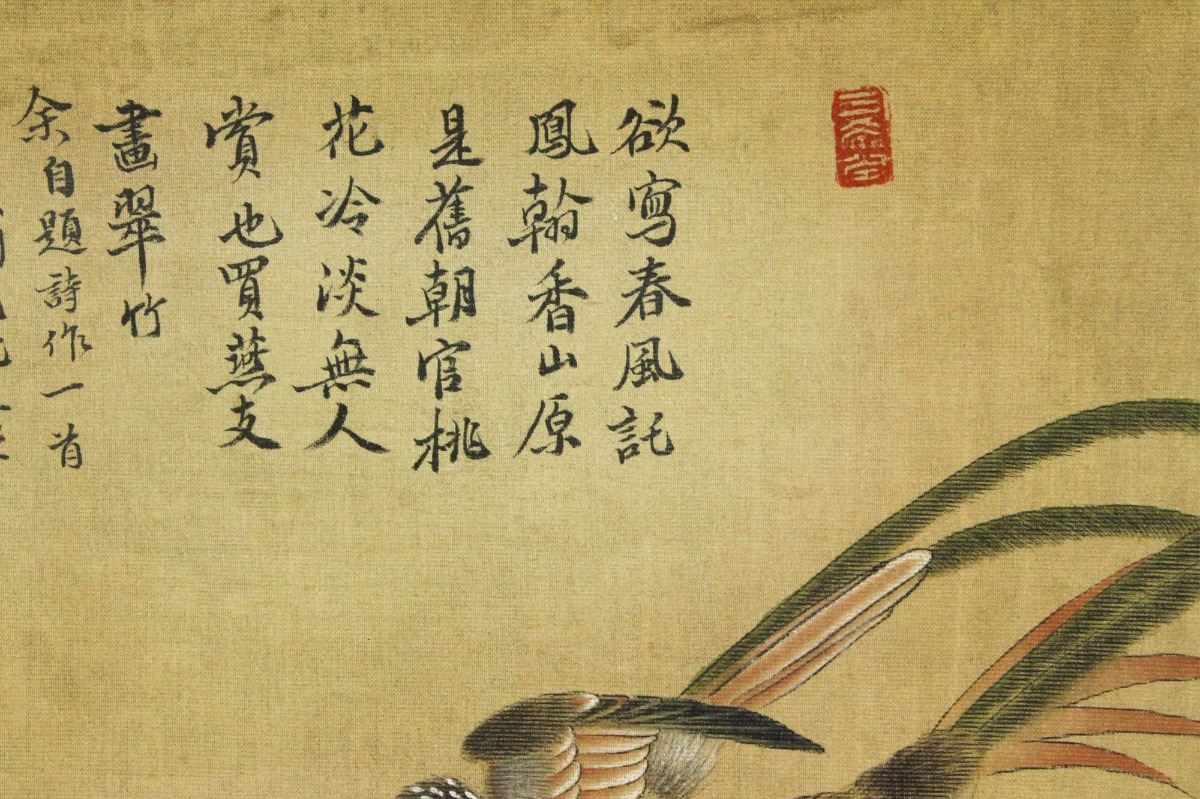 欲寫春風託
鳳翰香山原
是舊朝官桃
花冷淡無人
賞也買燕支
畫翠竹
余自題詩作一首